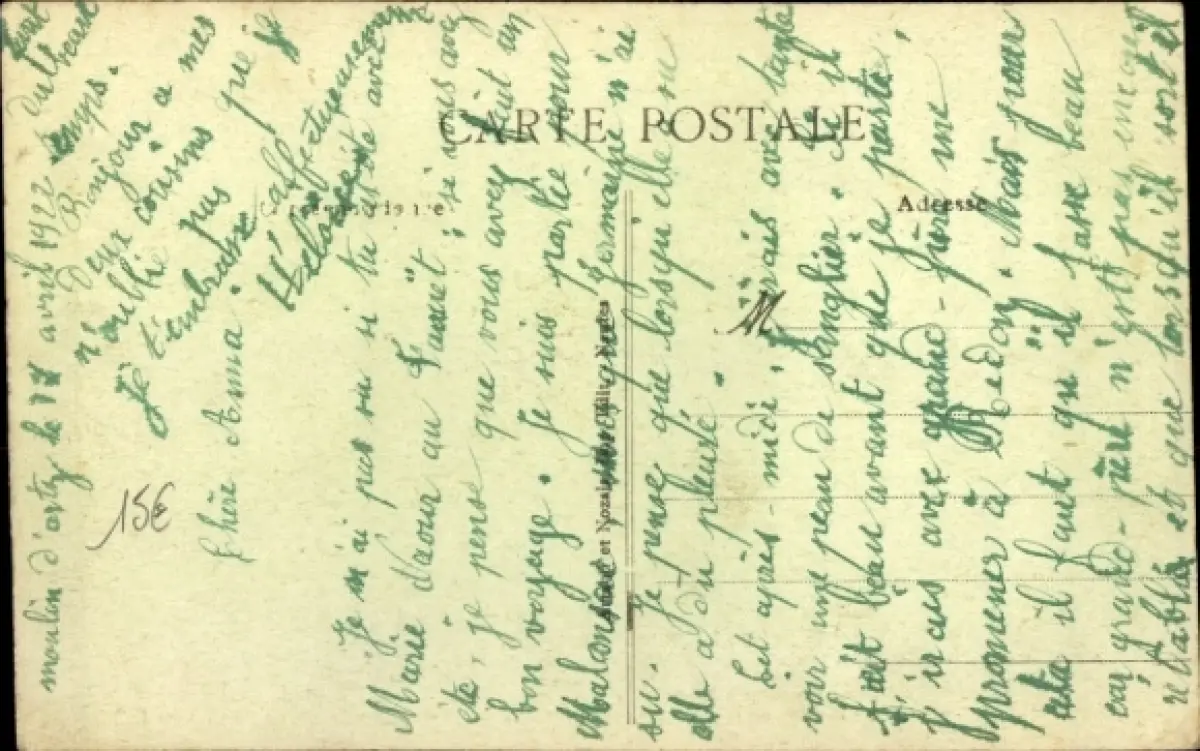 CARTE POSTALE
Correspondance
Adresse
M
15€
moulin d'arty le 17 avril 1922
Chère Anna
Je n'ai pas su si tu as été avec
Marie d'aour au Faouët si vous avez
été, je pense que vous avez fait un
bon voyage. Je suis partie pour
Malansac Germaine n'ai
su. Je pense que lorsqu'elle su
elle a du pleuré.
Cet après-midi j'irais avec tante
voir une peau de sanglier. Ce il
fait beau avant que je parte,
j'irais avec grand-père me
promener à Redon. Mais pour
cela il faut qu'il fasse beau
car grand-père n'est pas encore
rétabli et que lorsqu'il sort il
faut du beau
temps.
Bonjour a mes
Deux cousins que je
n'oublie pas
Je t'embrasse affectueusement
Héloïse